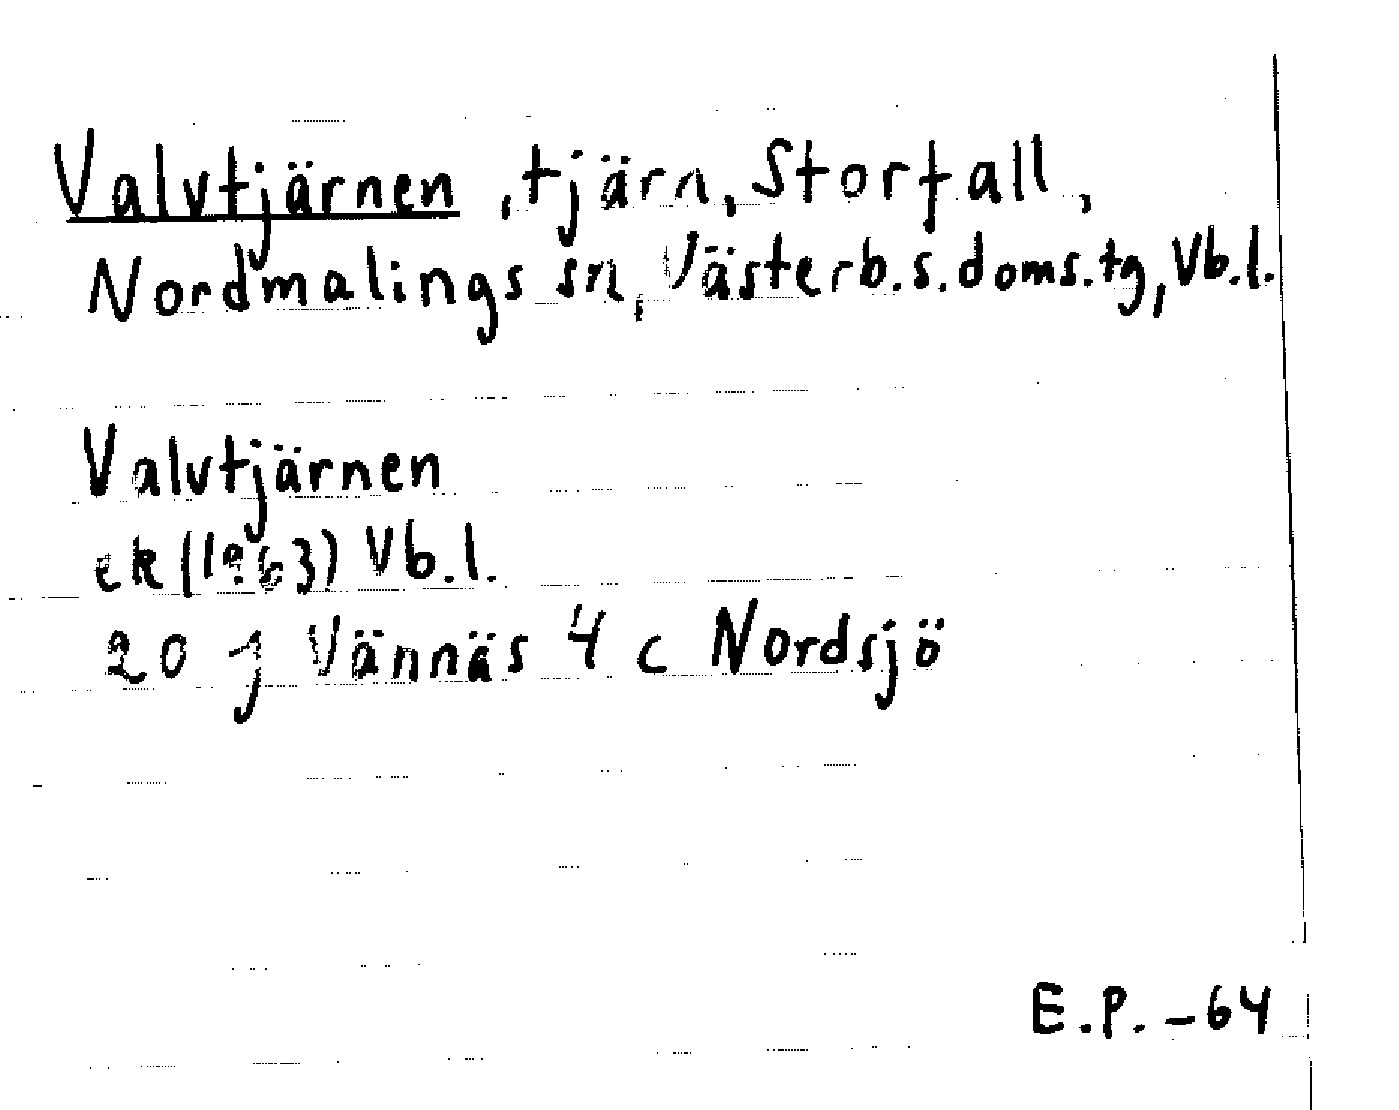 Valvtjärnen, tjärn, Storfall,
Nordmalings sn, Västerb.s.doms.tg, Vb.l.
Valvtjärnen
ek (1963) Vb.l.
20 J Vännäs 4 c Nordsjö
E.P. -64